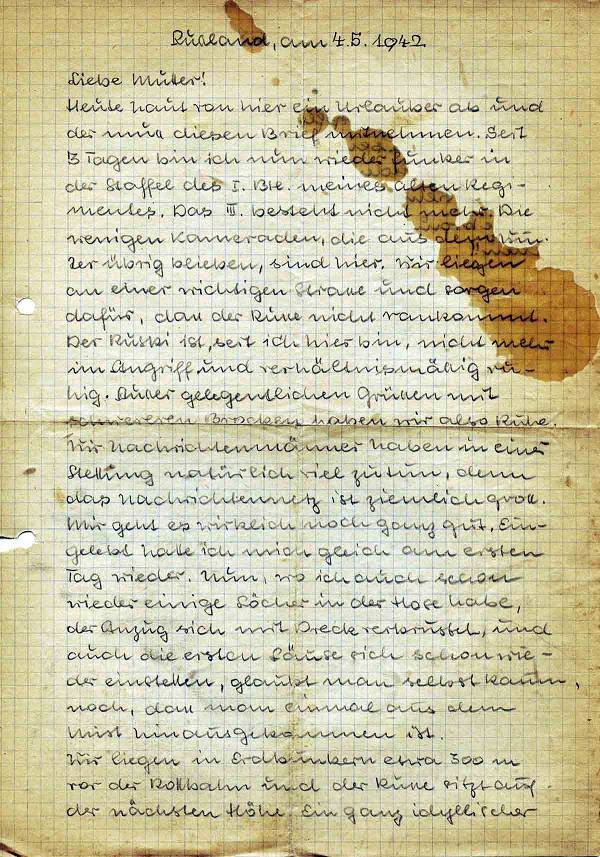 Russland, am 4.5.1942
Liebe Mutter!
Heute haut von hier ein Urlauber ab und
der muss diesen Brief mitnehmen. Seit
3 Tagen bin ich nun wieder Funker in
der Staffel des I. Btl. meines alten Regi-
mentes. Das III. besteht nicht mehr. Die
wenigen Kameraden, die aus dem
übrig blieben, sind hier. Wir liegen
an einer wichtigen Strasse und sorgen
dafür, dass der Russe nicht rankommt.
Der Ruski ist, seit ich hier bin, nicht mehr
im Angriff und verhältnismäßig ru-
hig. Ausser gelegentlichen Grüssen mit
schwereren Brocken haben wir also Ruhe.
Wir Nachrichtenmänner haben in einer
Stellung natürlich viel zu tun, denn
das Nachrichtennetz ist ziemlich gross.
Mir geht es wirklich noch ganz gut. Ein-
gelebt hatte ich mich gleich am ersten
Tag wieder. Nun, wo ich auch schon
wieder einige Löcher in der Hose habe,
der Anzug sich mit Dreck verkrustet, und
auch die ersten Läuse sich schon wie-
der einstellen, glaubt man selbst kaum,
noch, dass man einmal aus dem
Mist hinausgekommen ist.
Wir liegen in Erdbunkern etwa 300 m
vor der Rollbahn und der Russe sitzt auf
der nächsten Höhe. Ein ganz idyllischer